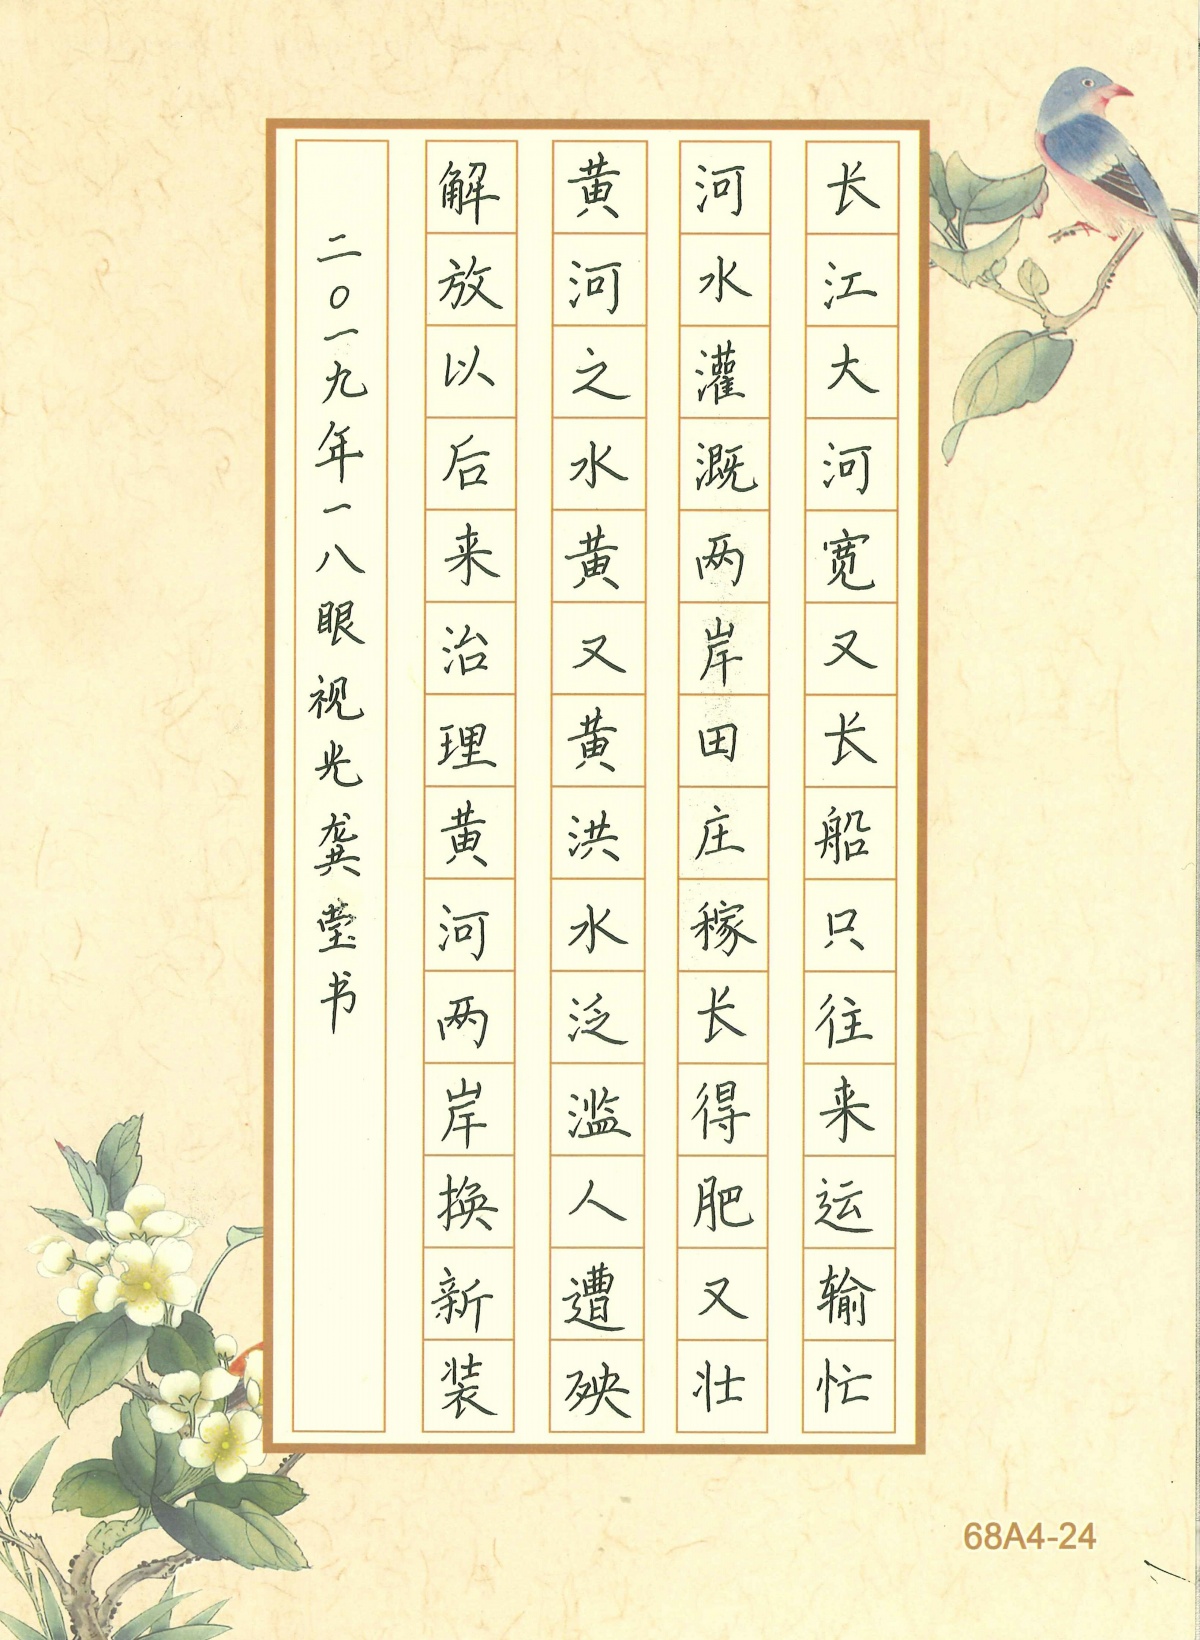 长江大河宽又长船只往来运输忙
河水灌溉两岸田庄稼长得肥又壮
黄河之水黄又黄洪水泛滥人遭殃
解放以后来治理黄河两岸换新装
二〇一九年一八眼视光龚莹书
68A4-24